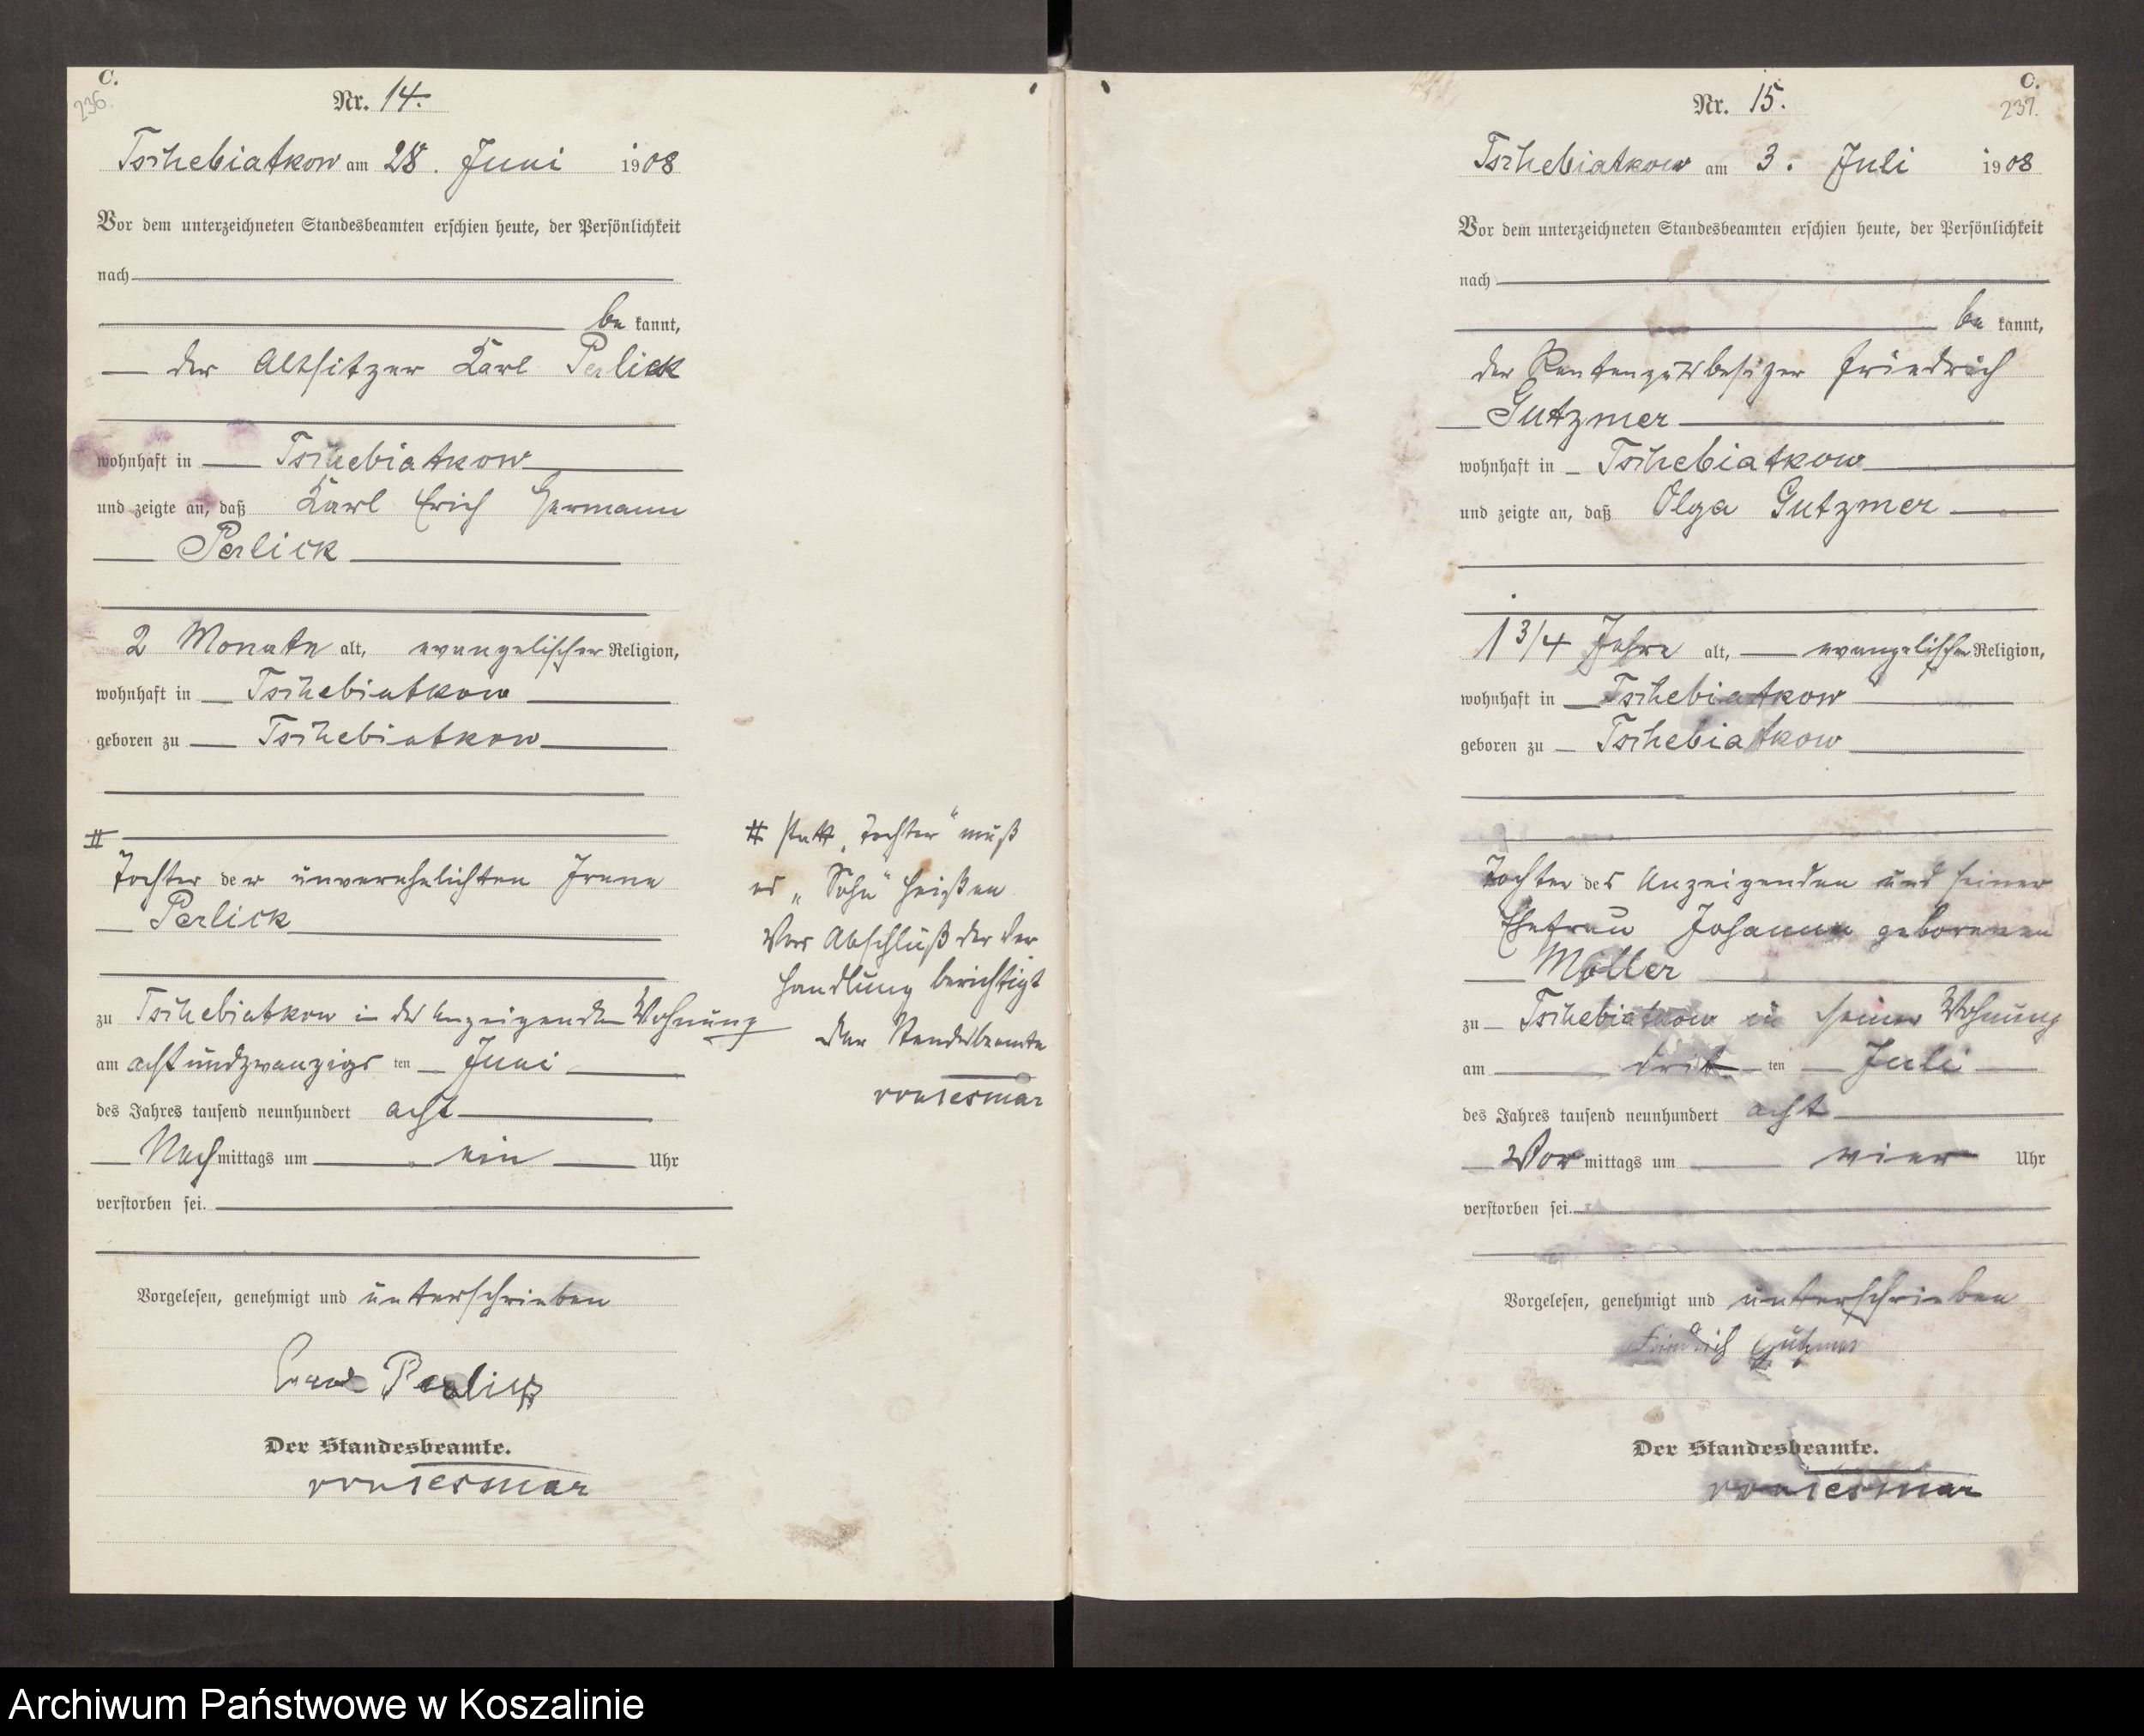 C.
236.
Nr. 14.
Tschebiatkow am 28. Juni 1908
Vor dem unterzeichneten Standesbeamten erschien heute, der Persönlichkeit
nach
be kannt,
der Altsitzer Karl Perlick
wohnhaft in Tschebiatkow
und zeigte an, daß Karl Erich Hermann
Perlick
2 Monate alt, evangelischer Religion,
wohnhaft in Tschebiatkow
geboren zu Tschebiatkow
Tochter der unverehelichten Irene
Perlick
zu Tschebiatkow in des Anzeigenden Wohnung
am achtundzwanzigs ten Juni
des Jahres tausend neunhundert acht
Nach mittags um ein Uhr
verstorben sei.
Vorgelesen, genehmigt und unterschrieben
Perlick
Der Standesbeamte.
# statt „Tochter" muß
es „Sohn" heißen
Vor Abschluß der Ver
handlung berichtigt
Der Standesbeamte
C.
237.
Nr. 15.
Tschebiatkow am 3. Juli 1908
Vor dem unterzeichneten Standesbeamten erschien heute, der Persönlichkeit
nach
be kannt,
der Rentengutsbesitzer Friedrich
Gutzmer
wohnhaft in Tschebiatkow
und zeigte an, daß Olga Gutzmer
1 3/4 Jahre alt, evangelischer Religion,
wohnhaft in Tschebiatkow
geboren zu Tschebiatkow
Tochter des Anzeigenden und seiner
Ehefrau Johanna geborenen
Möller
zu Tschebiatkow in seiner Wohnung
am drit ten Juli
des Jahres tausend neunhundert acht
Vor mittags um vier Uhr
verstorben sei.
Vorgelesen, genehmigt und unterschrieben
Friedrich Gutzmer
Der Standesbeamte.
Archiwum Państwowe w Koszalinie